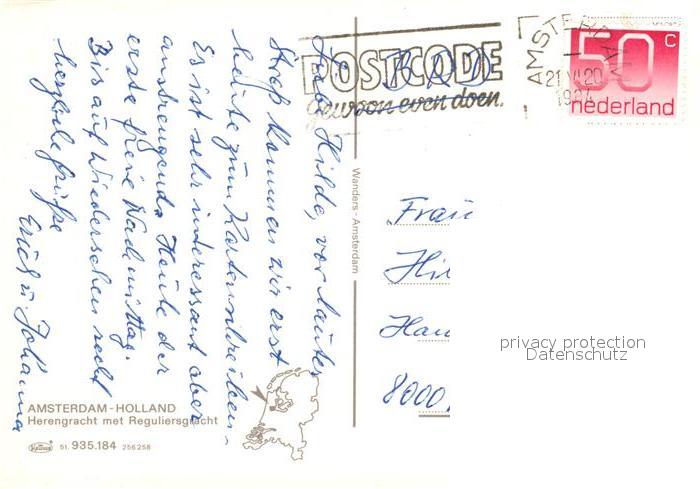 Liebe Hilde, vor lauter
Streß kommen wir erst
heute zum Kartenschreiben.
Es ist sehr interessant aber
anstrengend. Heute der
erste freie Nachmittag.
Bis auf Wiedersehen recht
herzliche Grüße
Erich u. Johanna
POSTCODE
gewoon even doen.
AMSTERDAM
21 VI 20
50 c
nederland
Wanders - Amsterdam
Frau
Hil
Han
8000
privacy protection
Datenschutz
AMSTERDAM-HOLLAND
Herengracht met Reguliersgracht
51. 935.184 256258